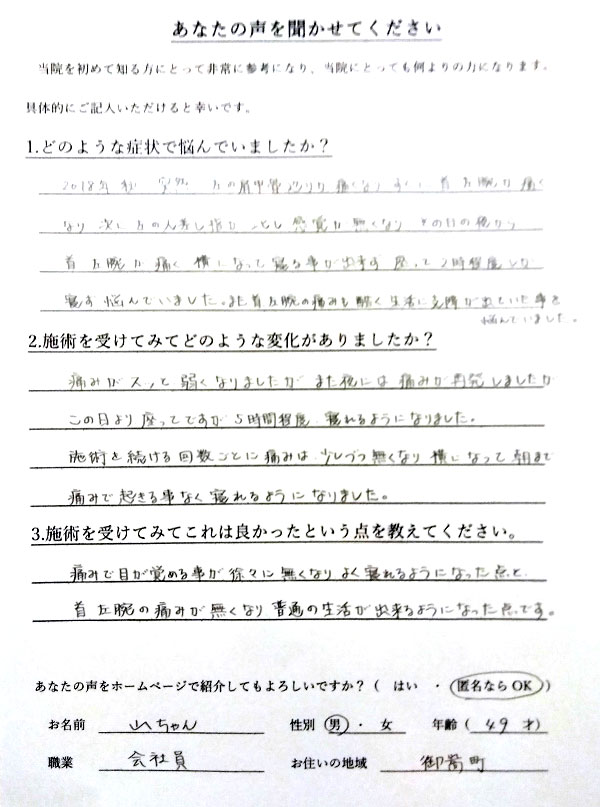 あなたの声を聞かせてください
当院を初めて知る方にとって非常に参考になり、当院にとっても何よりの力になります。
具体的にご記入いただけると幸いです。
1.どのような症状で悩んでいましたか?
2018年 秋 突然 左の肩甲骨辺りが痛くなり 首 左腕が痛く
なり 次に左の人差し指が 感覚が無くなり その日の夜から
首 左腕が痛く 横になって寝る事が出来ず 座って2時間程度しか
寝す 悩んでいました。また首左腕の痛みも酷く生活に支障が出ていた事を
悩んでいました。
2.施術を受けてみてどのような変化がありましたか?
痛みがスッと弱くなりましたが また夜には痛みが再発しましたが
この日より座ってですが5時間程度 寝れるようになりました。
施術を続ける回数ごとに痛みは 少しづつ無くなり 横になって朝まで
痛みで起きる事なく寝れるように なりました。
3.施術を受けてみてこれは良かったという点を教えてください。
痛みで目が覚める事が徐々に無くなり よく寝れるようになった点と、
首 左腕の痛みが無くなり 普通の生活が出来るようになった点です。
あなたの声をホームページで紹介してもよろしいですか?( はい ・ 匿名ならOK )
お名前 山ちゃん 性別 男 ・ 女 年齢 ( 49 才 )
職業 会社員 お住いの地域 御嵩町